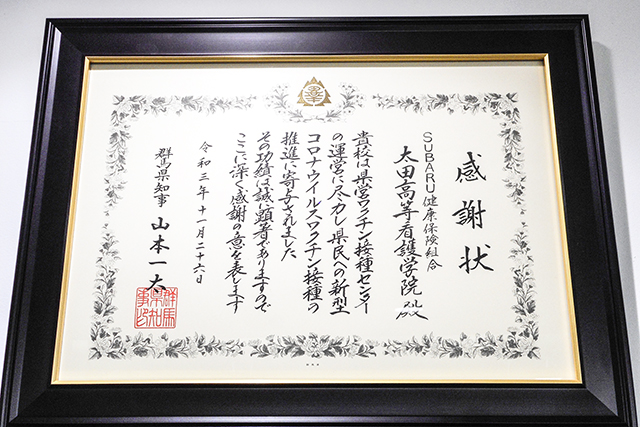 感謝状
SUBARU健康保険組合
太田高等看護学院殿
貴校は県営ワクチン接種センター
の運営に尽力し県民への新型
コロナウイルスワクチン接種の
推進に寄与されました
その功績は誠に顕著でありますので
ここに深く感謝の意を表します
令和三年十一月二十六日
群馬県知事 山本一太
群馬県知事之印